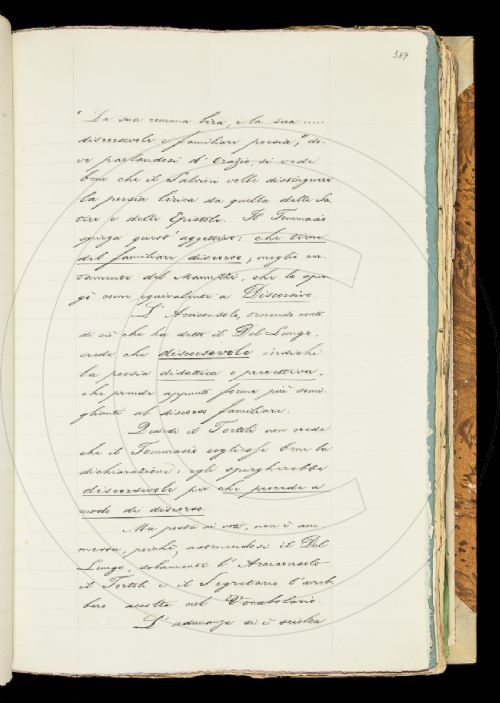 387
"La sua romana lira, e la sua .....
discorsevole e familiare poesia", do-
ve parlandosi d'Orazio si vede
bene che il Salvini volle distinguere
la poesia lirica da quella delle Sa-
tire e delle Epistole. Il Tommaseo
spiega quest'aggettivo: che tiene
del familiare discorso; meglio cer-
tamente del Manuzzi, che lo spie-
gò come equivalente a Discorsivo.
L'Arciconsolo, tenendo conto
di ciò che ha detto il Del Lungo,
crede che discorsevole indichi
la poesia didattica e precettiva,
che prende appunto forma più somi-
gliante al discorso familiare.
Quindi il Tortoli non crede
che il Tommaseo cogliesse bene la
dichiarazione: egli spiegherebbe
discorsevole per che procede a
modo di discorso.
Ma posta ai voti, non è am-
messa, perchè, astenendosi il Del
Lungo, solamente l'Arciconsolo
il Tortoli e il Segretario l'avreb-
bero accolta nel Vocabolario.
L'adunanza si è sciolta